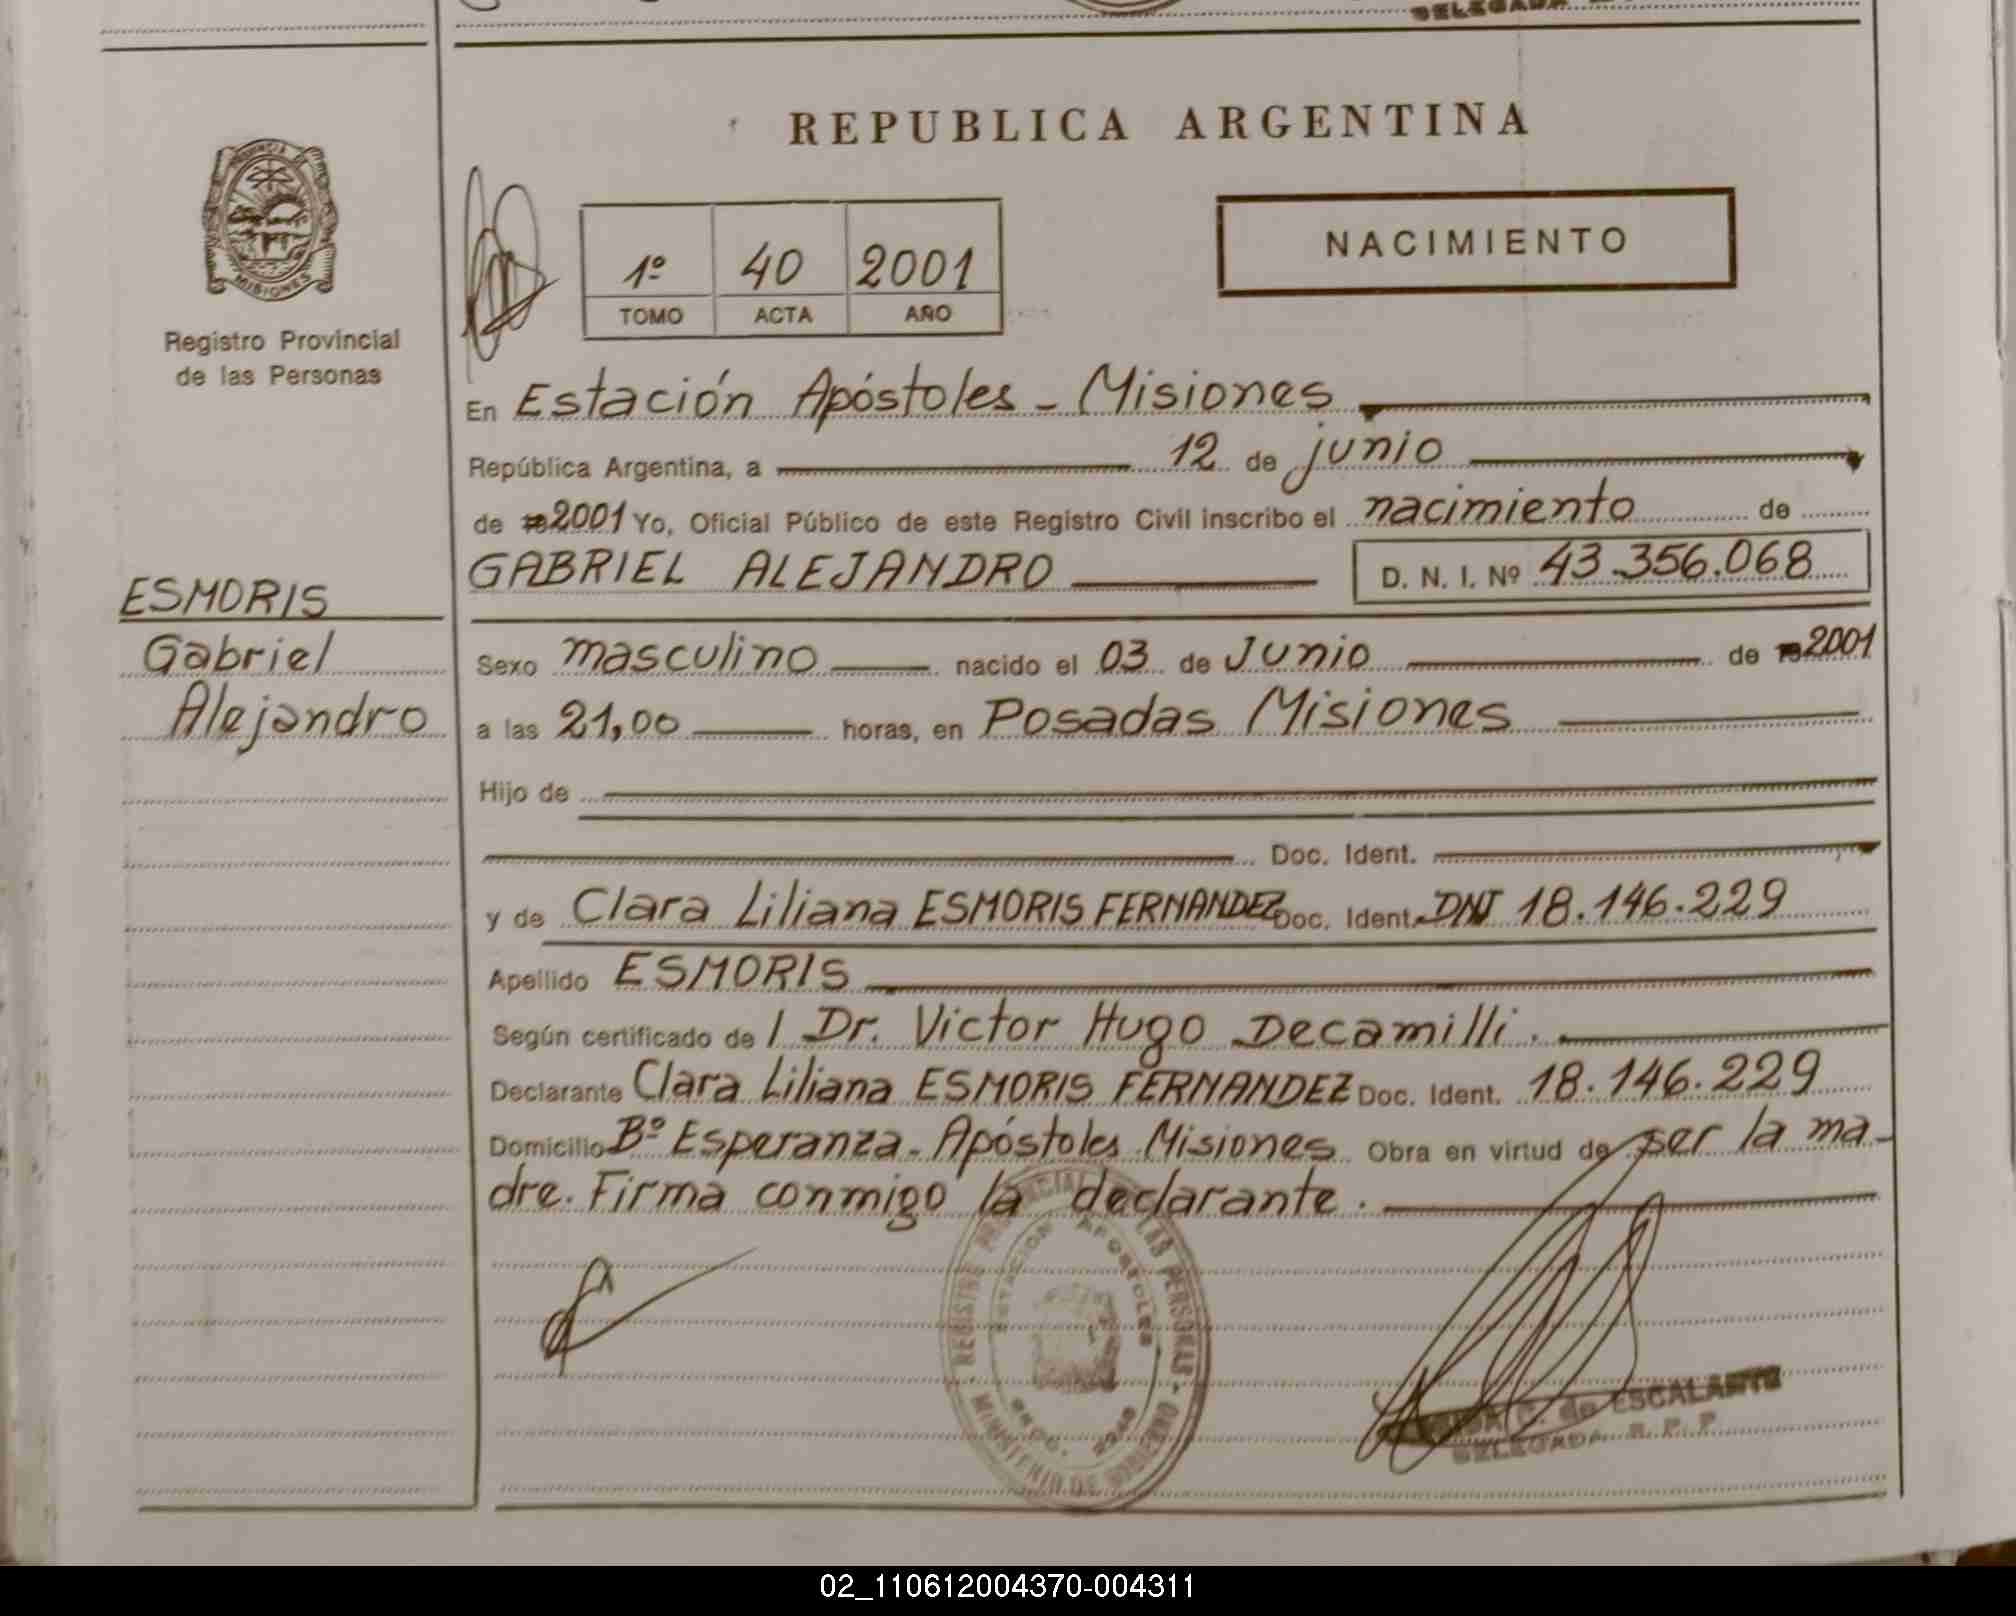 REPUBLICA ARGENTINA
PROVINCIA DE
MISIONES
Registro Provincial
de las Personas
NACIMIENTO
1º 40 2001
TOMO ACTA AÑO
En Estación Apóstoles - Misiones
República Argentina, a 12 de junio
de 19 2001 Yo, Oficial Público de este Registro Civil inscribo el nacimiento de
GABRIEL ALEJANDRO D. N. I. Nº 43.356.068
ESMORIS
Gabriel
Alejandro
Sexo masculino nacido el 03 de Junio de 19 2001
a las 21,00 horas, en Posadas Misiones
Hijo de
Doc. Ident.
y de Clara Liliana ESMORIS FERNANDEZ Doc. Ident. DNI 18.146.229
Apellido ESMORIS
Según certificado de l Dr. Victor Hugo Decamilli.
Declarante Clara Liliana ESMORIS FERNANDEZ Doc. Ident. 18.146.229
Domicilio Bº Esperanza - Apóstoles Misiones Obra en virtud de ser la ma-
dre. Firma conmigo la declarante.
REGISTRO PROVINCIAL DE LAS PERSONAS
ESTACION APOSTOLES
MINISTERIO DE GOBIERNO
C. de ESCALANTE
DELEGADA R. P. P.
02_110612004370-004311